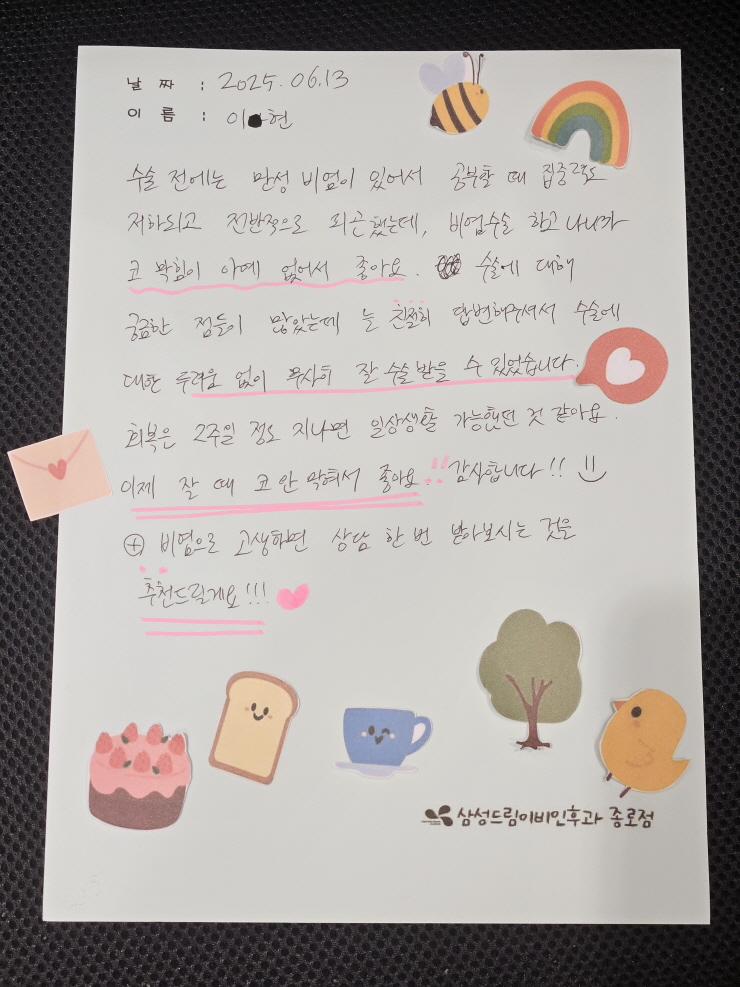 날 짜 : 2025. 06.13
이 름 : 이 현
수술 전에는 만성 비염이 있어서 공부할 때 집중력도
저하되고 전반적으로 피곤했는데, 비염수술 하고 나니까
코 막힘이 아예 없어서 좋아요. 수술에 대해
궁금한 점들이 많았는데 늘 친절히 답변해주셔서 수술에
대한 두려움 없이 무사히 잘 수술 받을 수 있었습니다.
회복은 2주일 정도 지나면 일상생활 가능했던 것 같아요.
이제 잘 때 코 안 막혀서 좋아요!! 감사합니다!!
⊕ 비염으로 고생하면 상담 한 번 받아보시는 것을
추천드릴게요!!!
삼성드림이비인후과 종로점